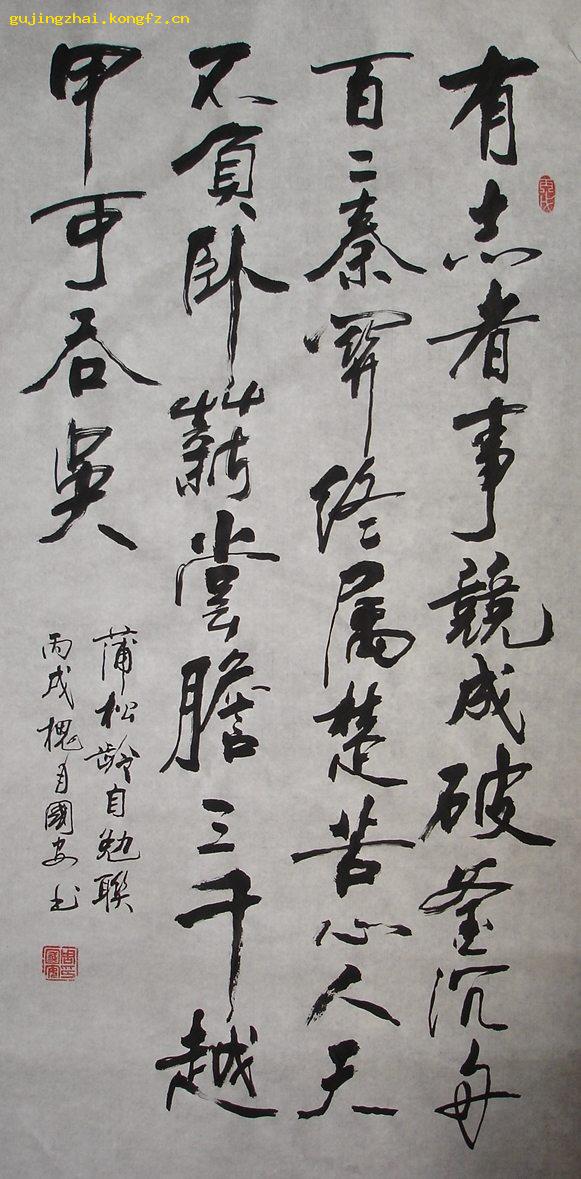 gujingzhai.kongfz.cn
有志者事競成破釜沉舟
百二秦関终属楚苦心人天
不負卧薪尝膽三千越
甲可吞吳
蒲松齡自勉聯
丙戌槐月國安书
丙戌